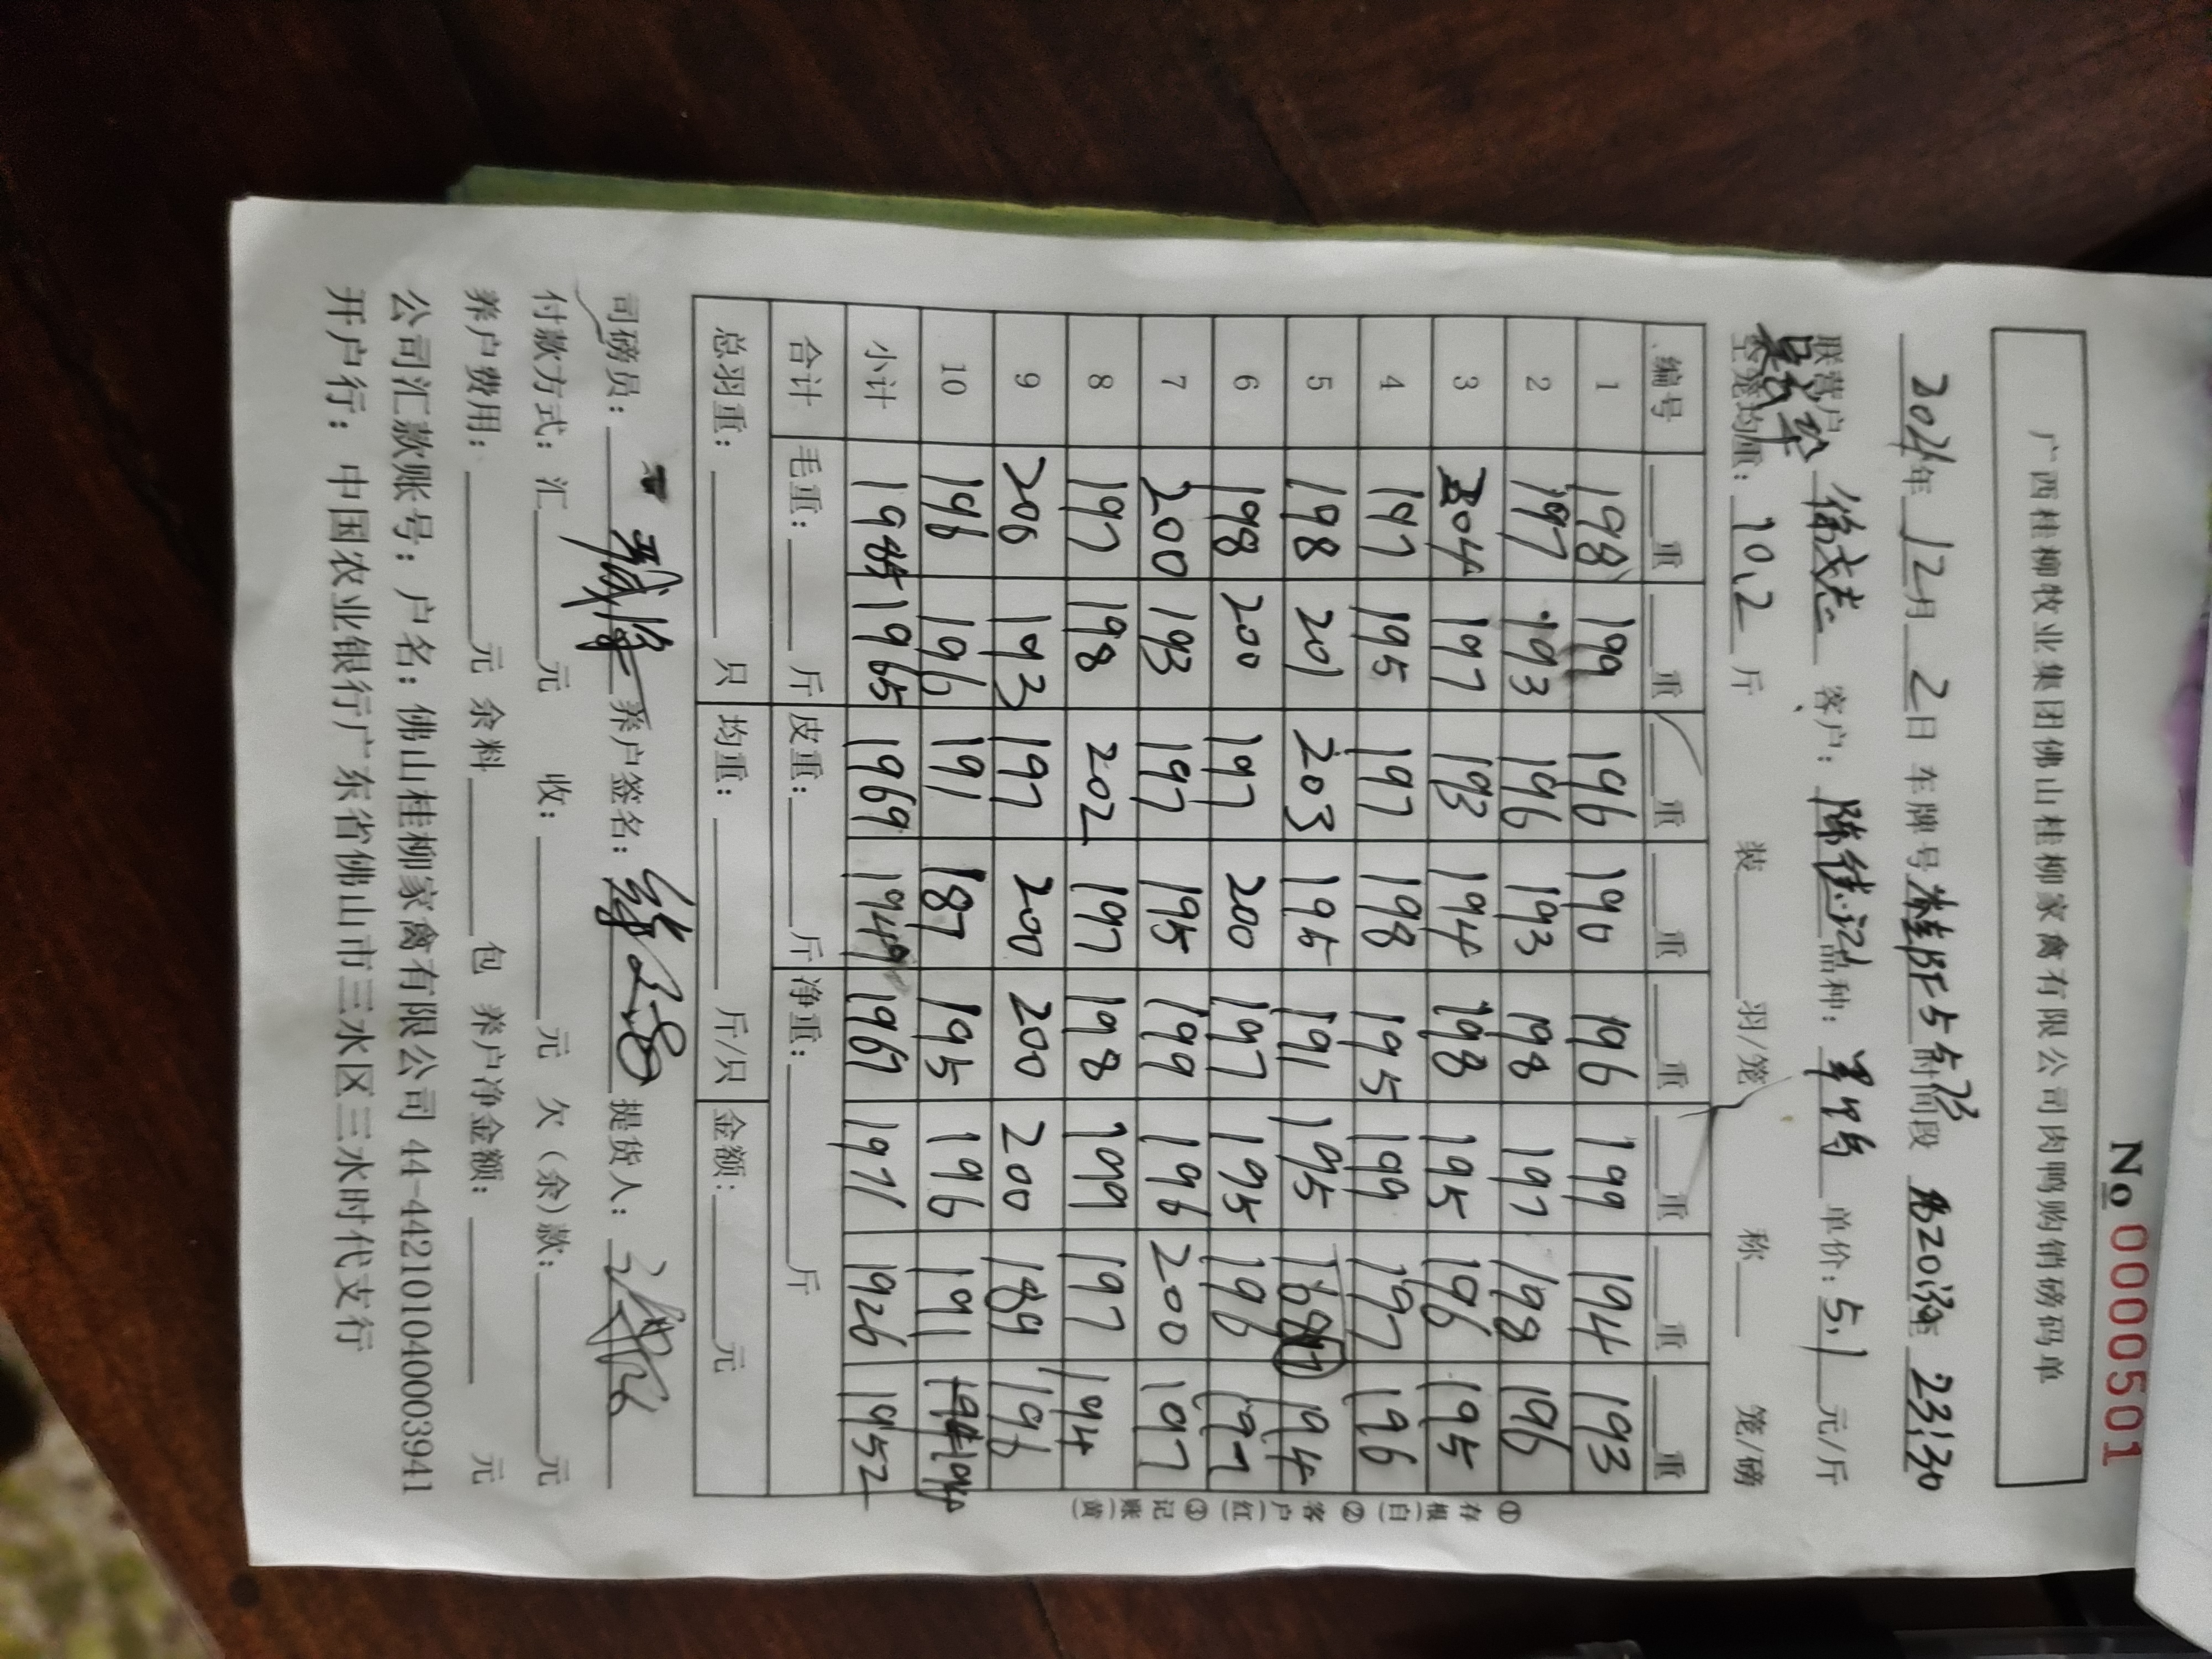 No 0000501
广西桂柳牧业集团佛山桂柳家禽有限公司肉鸭购销磅码单
2024年 12月 2日 车牌号 时间段 23:30
联营户 客户: 陈 记 品种: 单价: 5.1 元/斤
空笼均重: 10.2 斤 装 羽/笼 称 笼/磅
编号 重 重 重 重 重 重 重 重
1 198 199 196 190 196 199 194 193
2 197 193 196 193 198 197 198 196
3 204 197 193 194 198 195 196 195
4 197 195 197 198 195 199 197 196
5 198 201 203 195 191 195 168 194
6 198 200 197 200 197 195 196 197
7 200 193 197 195 199 196 200 197
8 197 198 202 197 198 199 197 194
9 200 193 197 200 200 200 189 196
10 196 196 191 187 195 196 191 194
小计 1985 1965 1969 1949 1967 1971 1926 1952
合计 毛重: 斤 皮重: 斤 净重: 斤
总羽重: 只 均重: 斤/只 金额: 元
①存根(白) ②客户(红) ③记账(黄)
司磅员: 养户签名: 提货人:
付款方式: 汇 元 收: 元 欠(余)款: 元
养户费用: 元 余料 包 养户净金额: 元
公司汇款账号: 户名: 佛山桂柳家禽有限公司 44-442101040003941
开户行: 中国农业银行广东省佛山市三水区三水时代支行